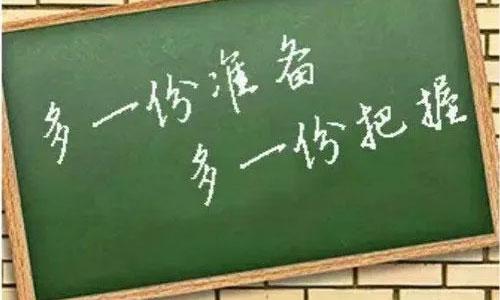 多一份准备
多一份把握